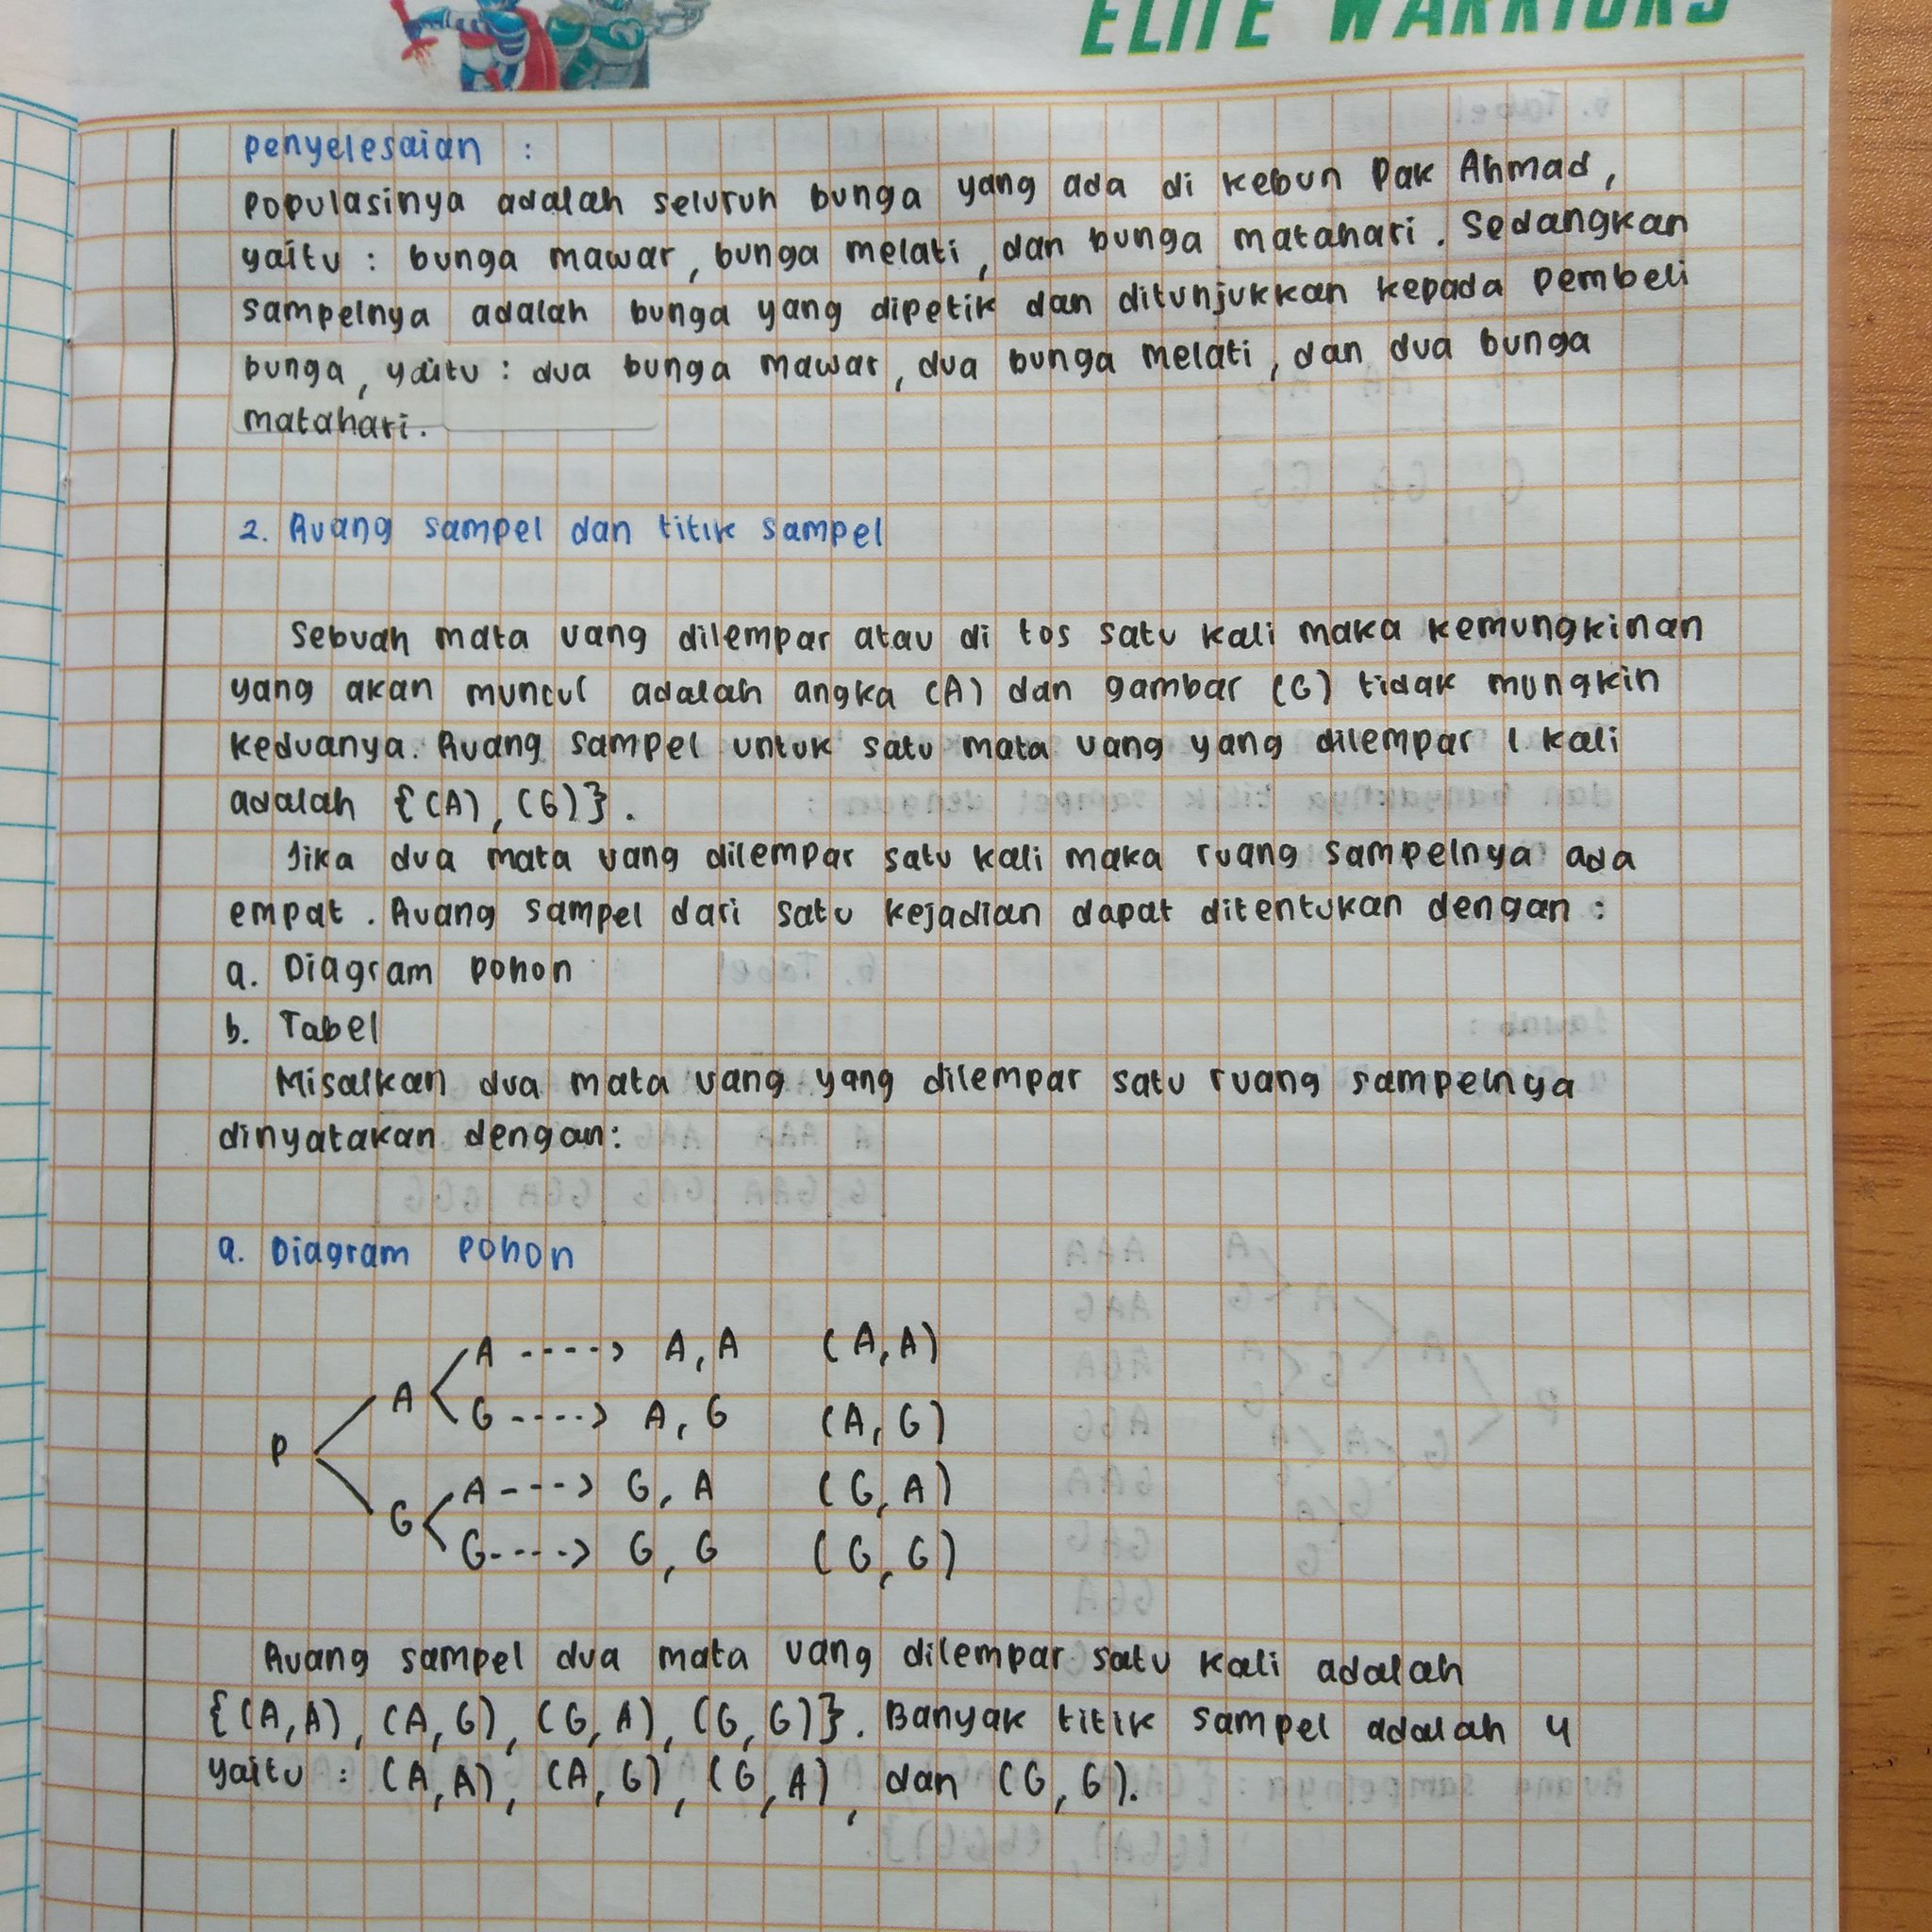 ELITE WARRIORS
Penyelesaian :
Populasinya adalah seluruh bunga yang ada di kebun Pak Ahmad,
yaitu : bunga mawar, bunga melati, dan bunga matahari. Sedangkan
sampelnya adalah bunga yang dipetik dan ditunjukkan kepada pembeli
bunga, yaitu : dua bunga mawar, dua bunga melati, dan dua bunga
matahari.
2. Ruang sampel dan titik sampel
Sebuah mata uang dilempar atau di tos satu kali maka kemungkinan
yang akan muncul adalah angka (A) dan gambar (G) tidak mungkin
keduanya. Ruang sampel untuk satu mata uang yang dilempar 1 kali
adalah {(A), (G)}.
Jika dua mata uang dilempar satu kali maka ruang sampelnya ada
empat. Ruang sampel dari satu kejadian dapat ditentukan dengan :
a. Diagram pohon
b. Tabel
Misalkan dua mata uang yang dilempar satu ruang sampelnya
dinyatakan dengan:
a. Diagram pohon
A ----> A, A (A, A)
A
G ----> A, G (A, G)
P
A ----> G, A (G, A)
G
G ----> G, G (G, G)
Ruang sampel dua mata uang dilempar satu kali adalah
{(A, A), (A, G), (G, A), (G, G)}. Banyak titik sampel adalah 4
yaitu : (A, A), (A, G), (G, A), dan (G, G).